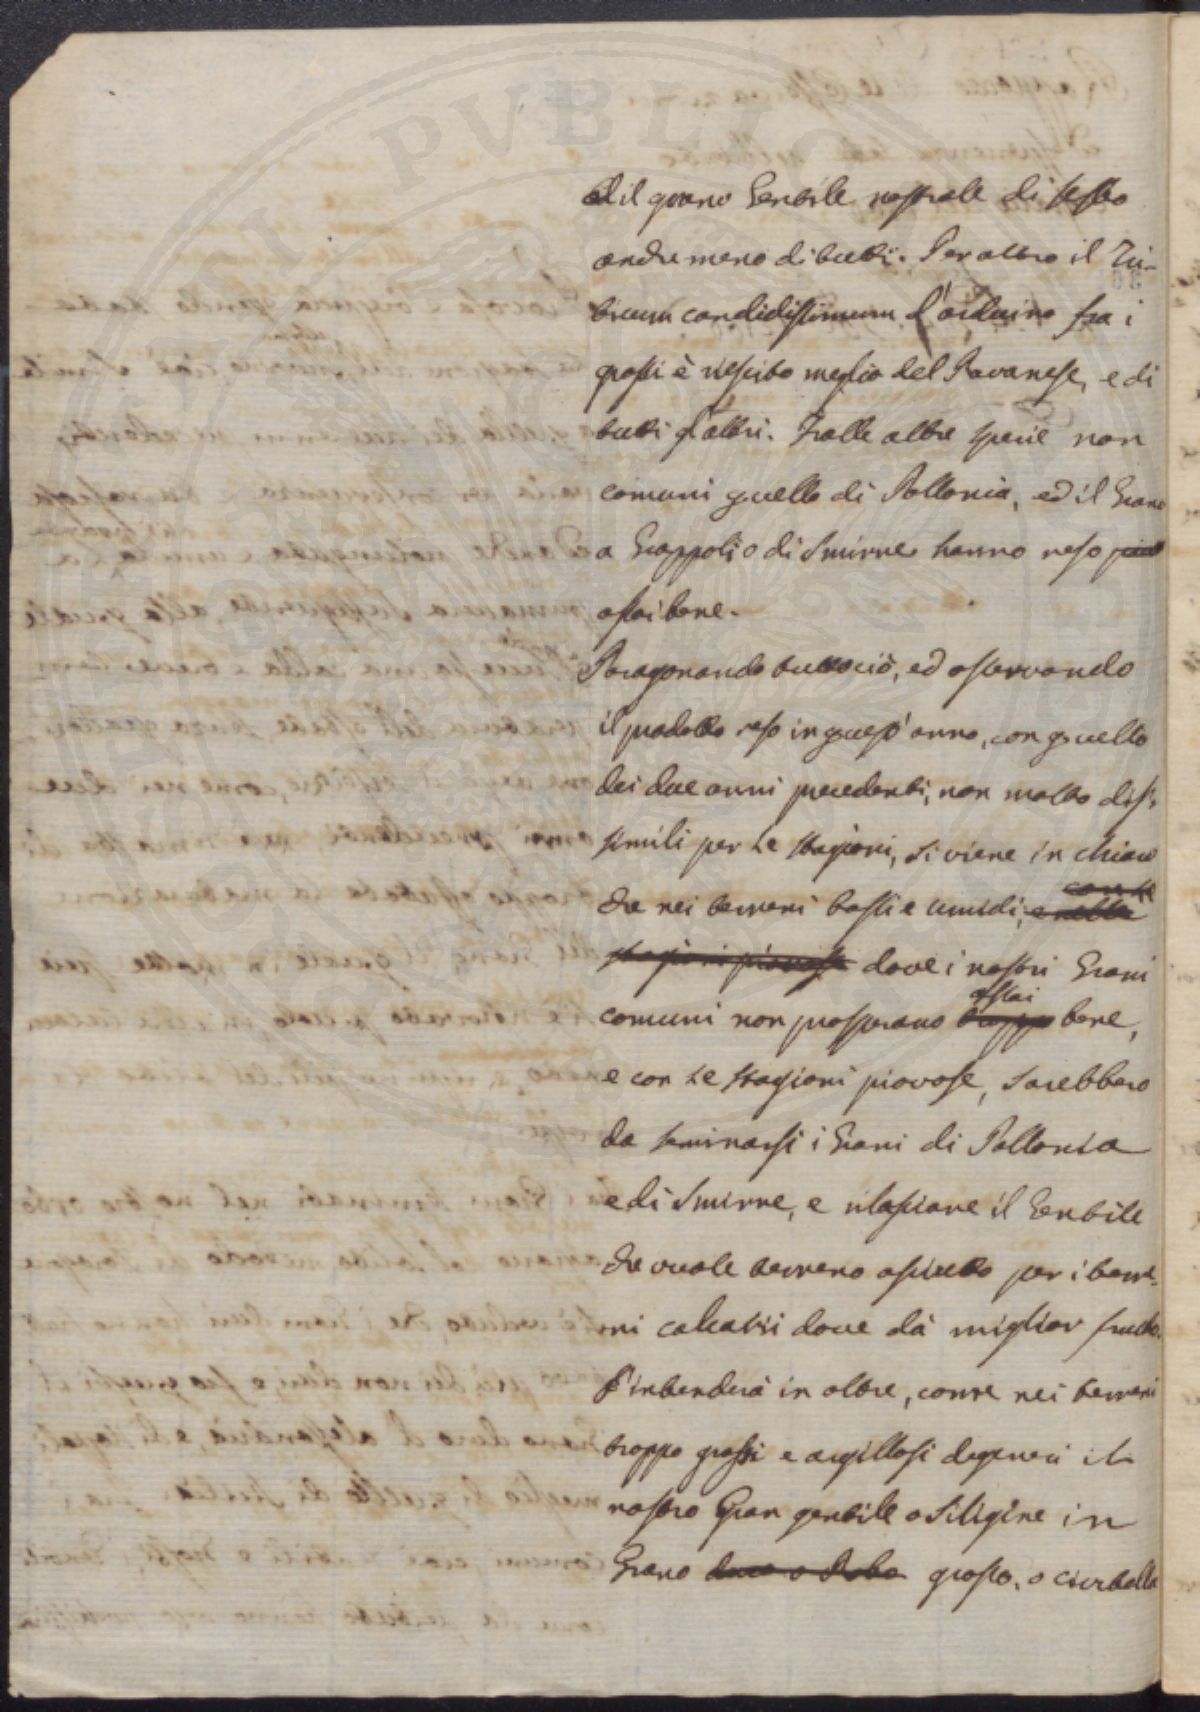 ed il grano Gentile nostrale di sesto
anche meno di tutti. Per altro il Tri-
ticum candidissimum d'arduino fra i
grossi è riescito meglio del Ravanese, e di
tutti gl'altri. Tralle altre specie non
comuni quello di Pollonia, ed il Grano
a Grappoli o di Smirne hanno reso
assai bene.
Paragonando tuttociò, ed osservando
il prodotto reso in quest'anno, con quello
dei due anni precedenti, non molto dissi-
simili per le stagioni, si viene in chiaro
che nei terreni bassi e umidi, e nelle con le
stagioni piovose dove i nostri Grani
comuni non prosperano troppo assai bene,
e con le stagioni piovose, sarebbero
da seminarsi i Grani di Pollonia
e di Smirne, e rilasciare il Gentile
che vuole terreno asciutto per i terre-
ni calcarii dove dà miglior frutto.
S'intenderà in oltre, come nei terreni
troppo grossi e argillosi degeneri il
nostro Gran gentile o Siligine in
Grano duro o Robo grosso, o civitella